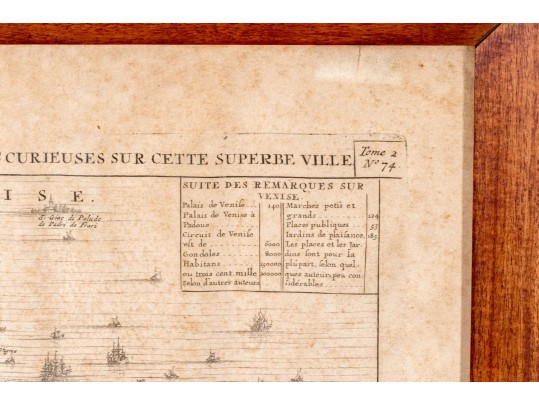 S CURIEUSES SUR CETTE SUPERBE VILLE
Tome 2
No 74.
ISE.
S. Gioe. de Palude
de Padri de Frari
SUITE DES REMARQUES SUR
VENISE.
Palais de Venise 140
Palais de Venise à
Padoue
Circuit de Venise
est de 6000
Gondoles 8000
Habitans
ou trois cent mille 300000
Selon d'autres auteurs
Marchez petit et
grands 124
Places publiques 53
Jardins de plaisance, 185
Les places et les Jar-
dins sont pour la
plûpart, selon quel-
ques auteurs, peu con-
sidérables